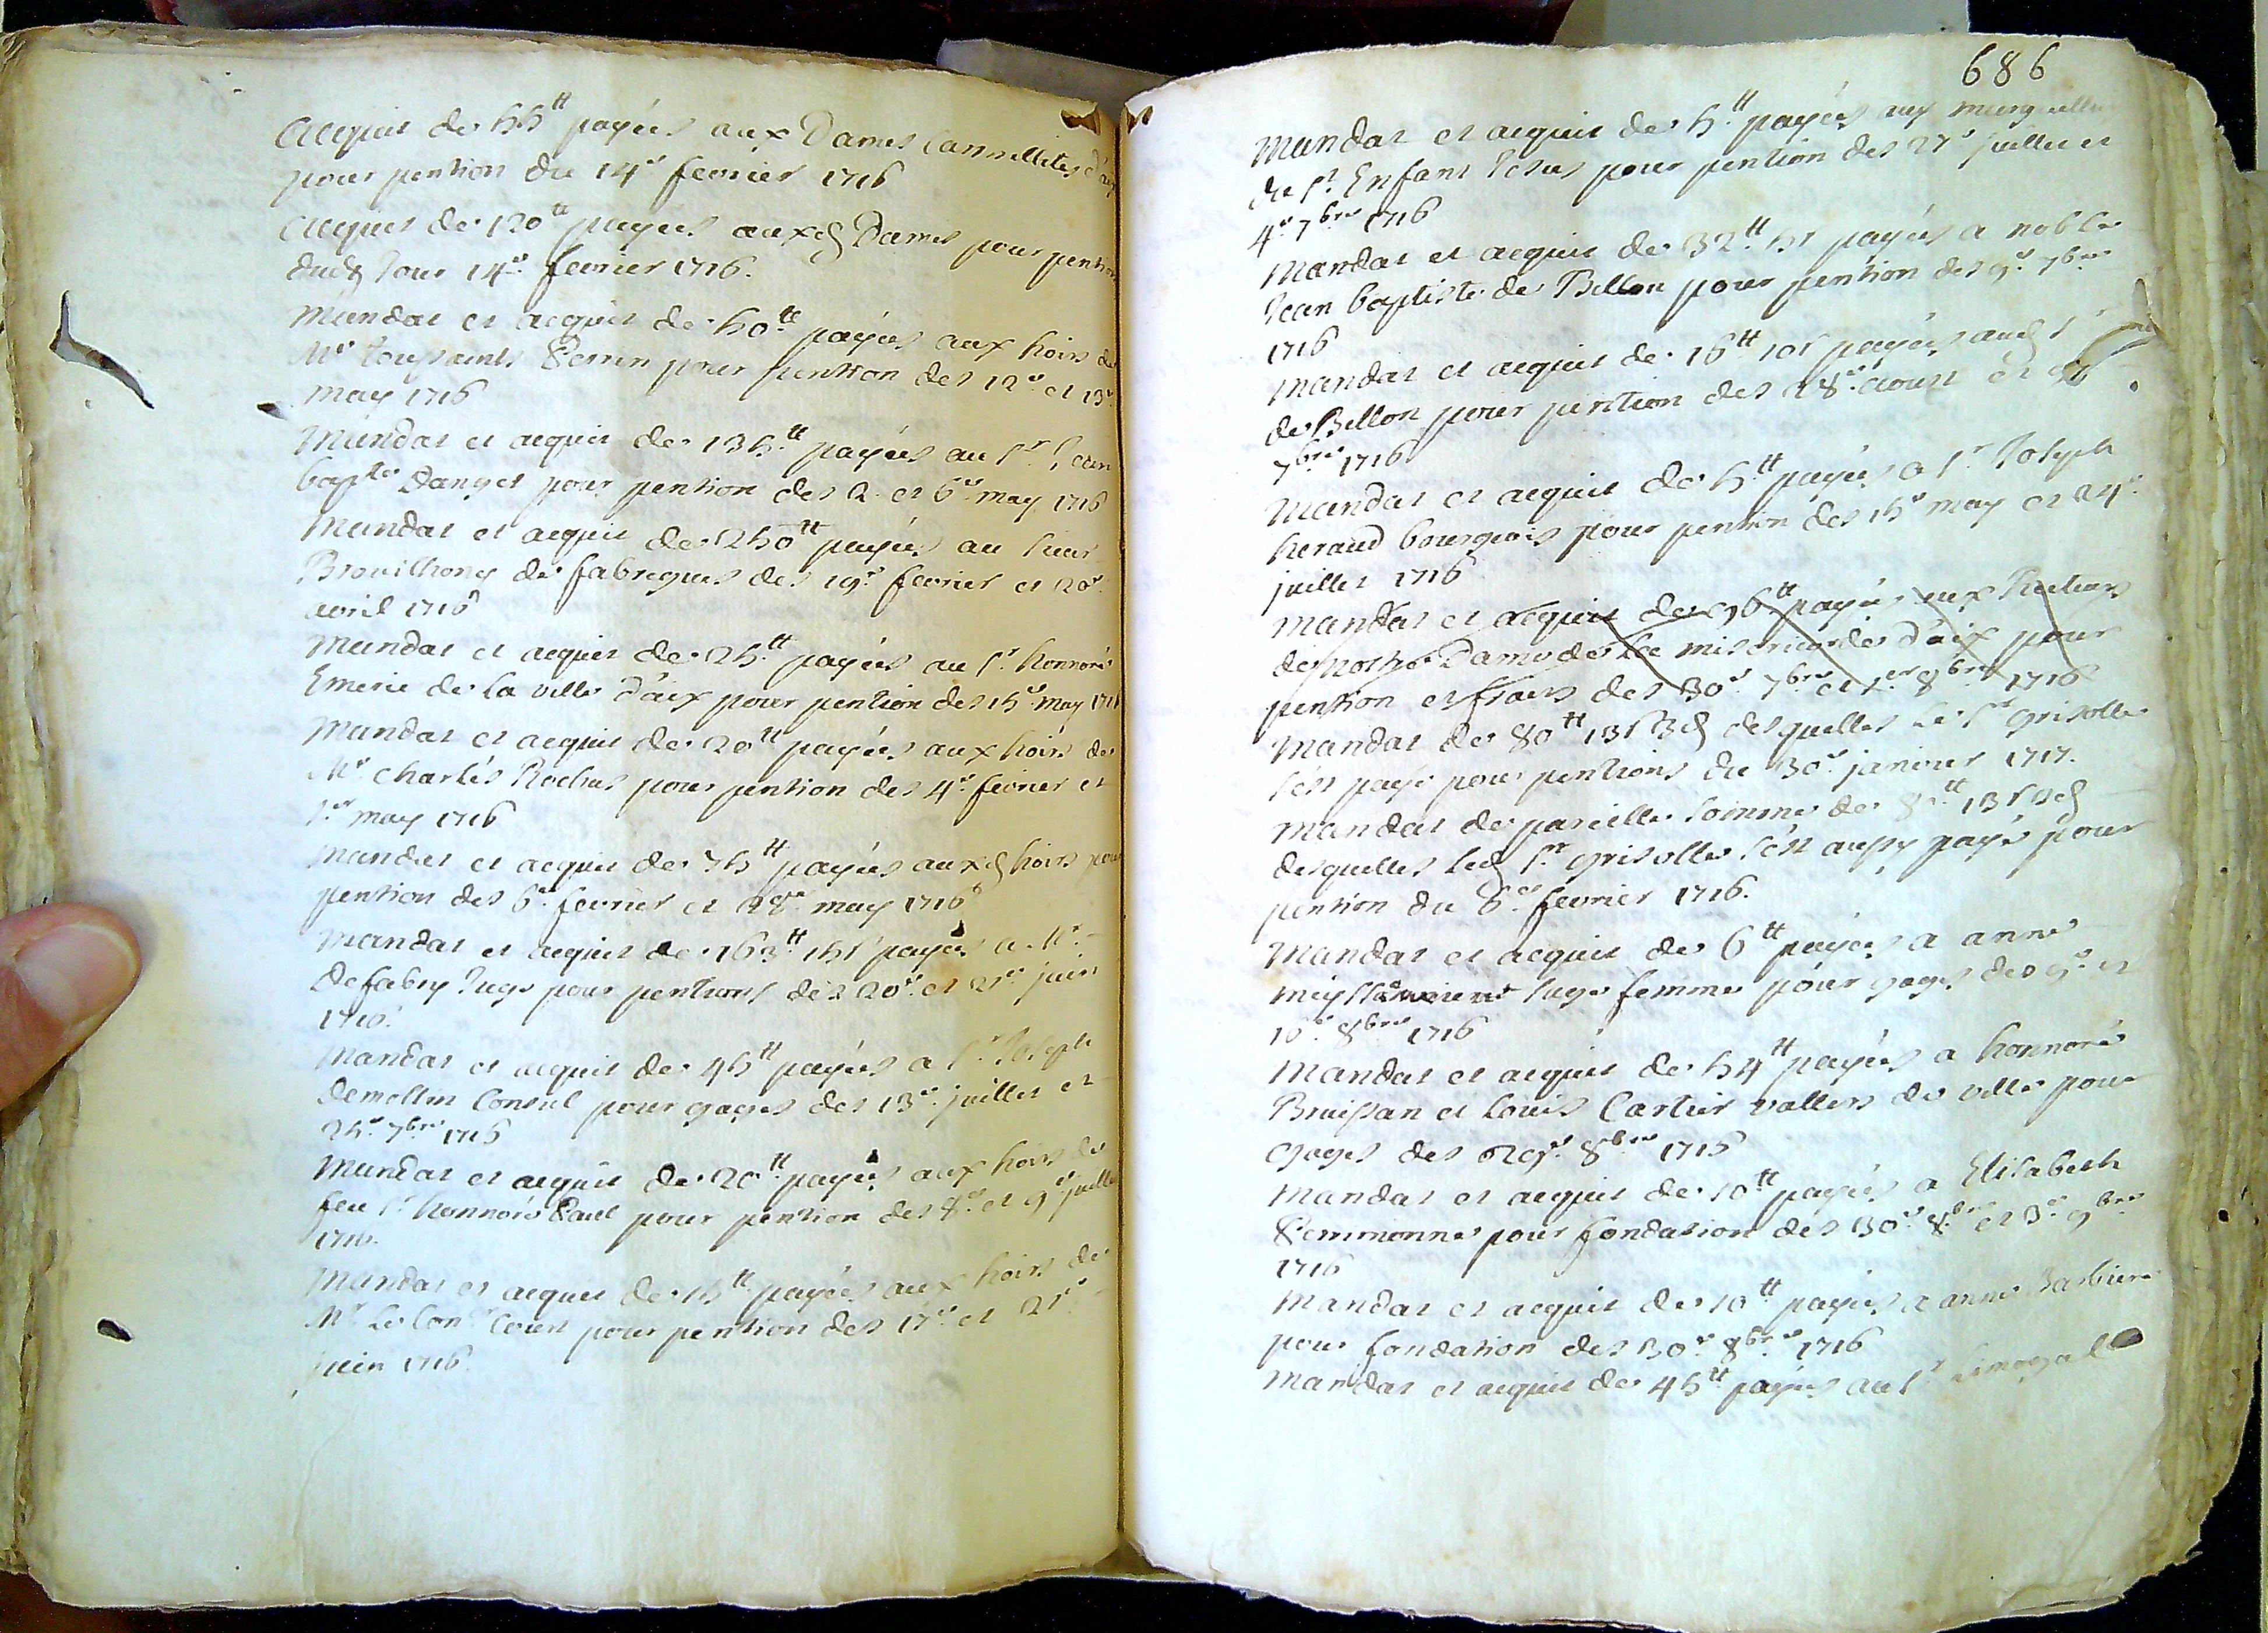 Acquit de 55tt payées aux Dames Carmellites d'aix
pour pention du 14e fevrier 1716
Acquit de 120tt payées auxd Dames pour pention
dud Jour 14e fevrier 1716.
Mandat et acquit de 50tt payées aux hoirs de
Me Toussaints Perrin pour pention des 12e et 13e
may 1716
Mandat et acquit de 135tt payées au Sr Jean
bapte Danget pour pention des 2 et 6e may 1716
Mandat et acquit de 1250tt payées au sieur
Brouilhony de fabregues des 19e fevrier et 20e
avril 1716
Mandat et acquit de 25tt payées au Sr honnoré
Emeric de la ville d'aix pour pention des 15e may 1716
Mandat et acquit de 20tt payées aux hoirs de
Me charles Rochas pour pention des 4e fevrier et
1er may 1716
Mandat et acquit de 75tt payées auxd hoirs pour
pention des 6e fevrier et may 1716
Mandat et acquit de 163tt 15s payés a Mr
De fabry Juge pour pentions des 20e et 21e juin
1716.
Mandat et acquit de 45tt payées a Sr Joseph
Demollin Consul pour gages des 13e juillet et
25e 7bre 1716
Mandat et acquit de 20tt payées aux hoirs de
feu Sr honnoré Paul pour pention des 8e et 9e juillet
1716.
Mandat et acquit de 15tt payées aux hoirs de
Mr Le Coner Court pour pention des 17e et 21e
juin 1716.
686
Mandat et acquit de 5tt payées aux marguilliers
du St Enfant Jesus pour pention des 27e juillet et
4e 7bre 1716
Mandat et acquit de 32tt 5s payées a noble
Jean baptiste de Bellon pour pention des 9e 7bre
1716
Mandat et acquit de 16tt 10s payées aud Sr
de Bellon pour pention des 28e aoust et
7bre 1716
Mandat et acquit de 5tt payées a Sr Joseph
heraud bourgeois pour pention des 15e may et 24e
juillet 1716
Mandat et acquit de 96tt payées aux Recteurs
de nostre Dame de la misericorde d'aix pour
pention et frais des 30e 7bre et 1er 8bre 1716
Mandat de 80tt 13s 3d desquelles le Sr grisolle
s'est payé pour pentions du 30e janvier 1717.
Mandat de pareille somme de 80tt 13s 3d
desquelles led Sr grisolle s'est aussy payé pour
pention du 6e fevrier 1716.
Mandat et acquit de 6tt payées a anne
sage femme pour gages des 9e et
10e 8bre 1716
Mandat et acquit de 54tt payées a honnoré
Bruissan et Louis Cartier vallets de ville pour
gages des 29e 8bre 1716
Mandat et acquit de 10tt payées a Elisabeth
pour fondation des 30e 8bre et 3e 9bre
1716
Mandat et acquit de 10tt payées a anne Barbiere
pour fondation des 30e 8bre 1716
Mandat et acquit de 45tt payées au Sr